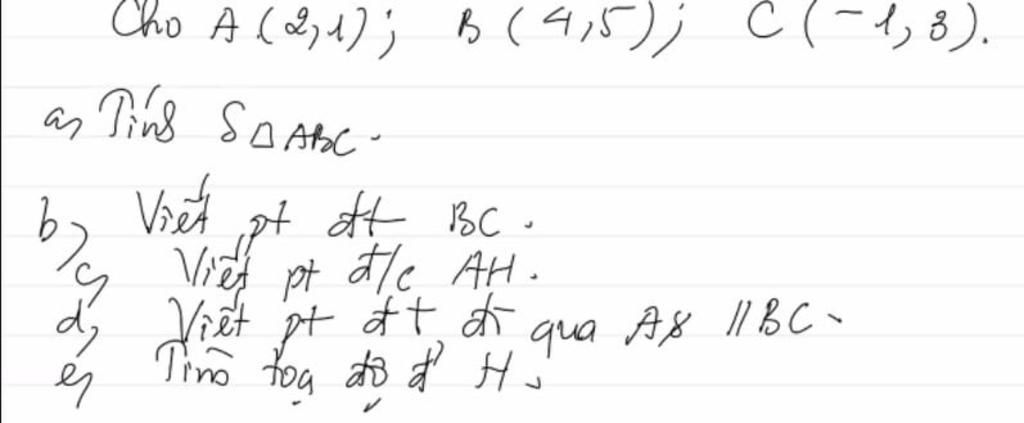 Cho A(2,1); B(4,5); C(-1,3).
a, Tính S△ABC.
b, Viết pt đt BC.
c, Viết pt đ/c AH.
d, Viết pt đt đi qua A & //BC.
e, Tìm toạ độ đ' H.